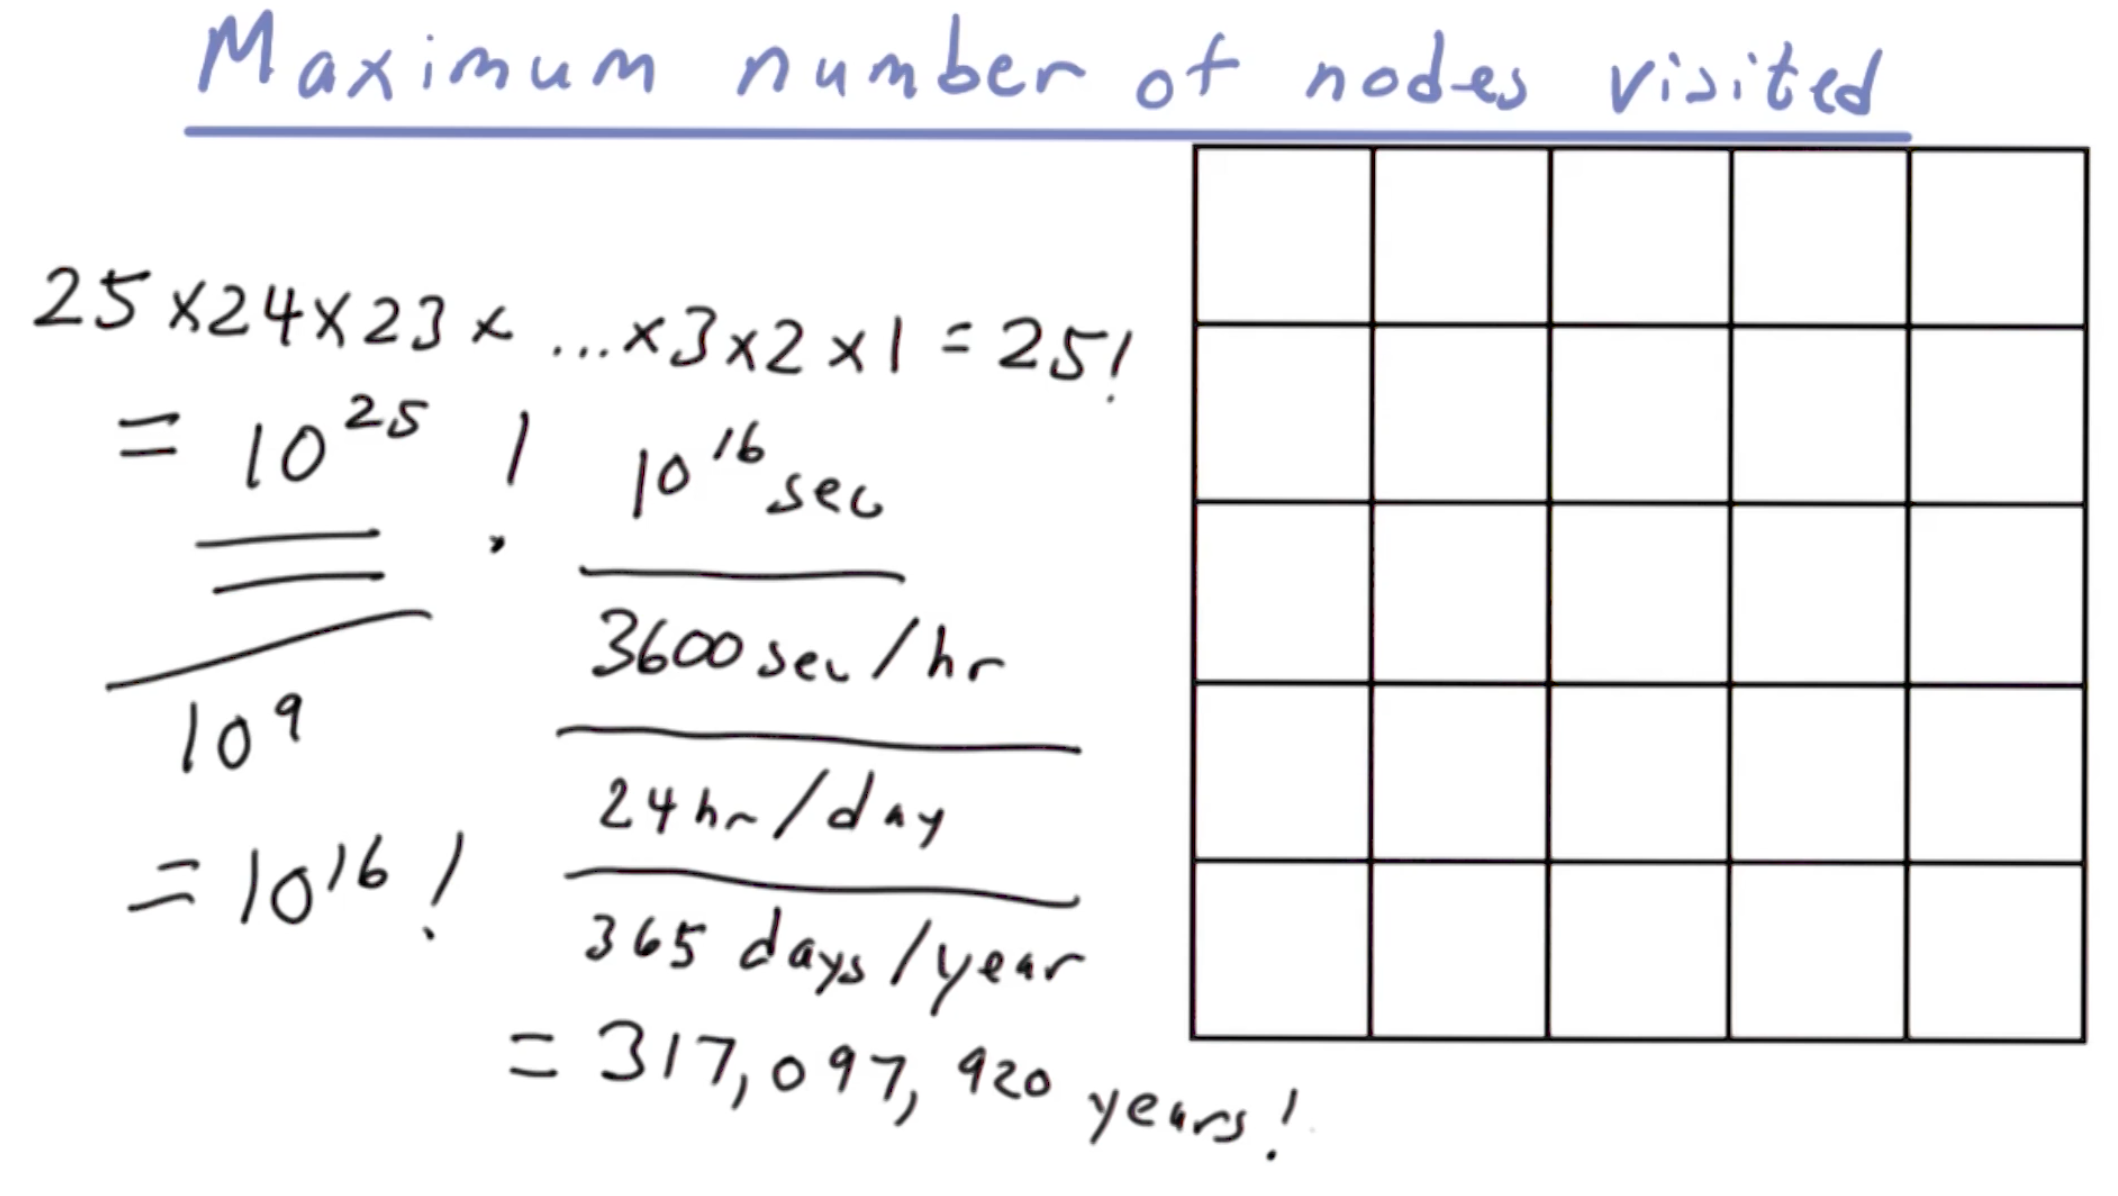 Maximum number of nodes visited
25 x 24 x 23 x ... x 3 x 2 x 1 = 25!
= 10^25 !
10^9
= 10^16 !
10^16 sec
3600 sec/hr
24 hr/day
365 days/year
= 317,097,920 years!